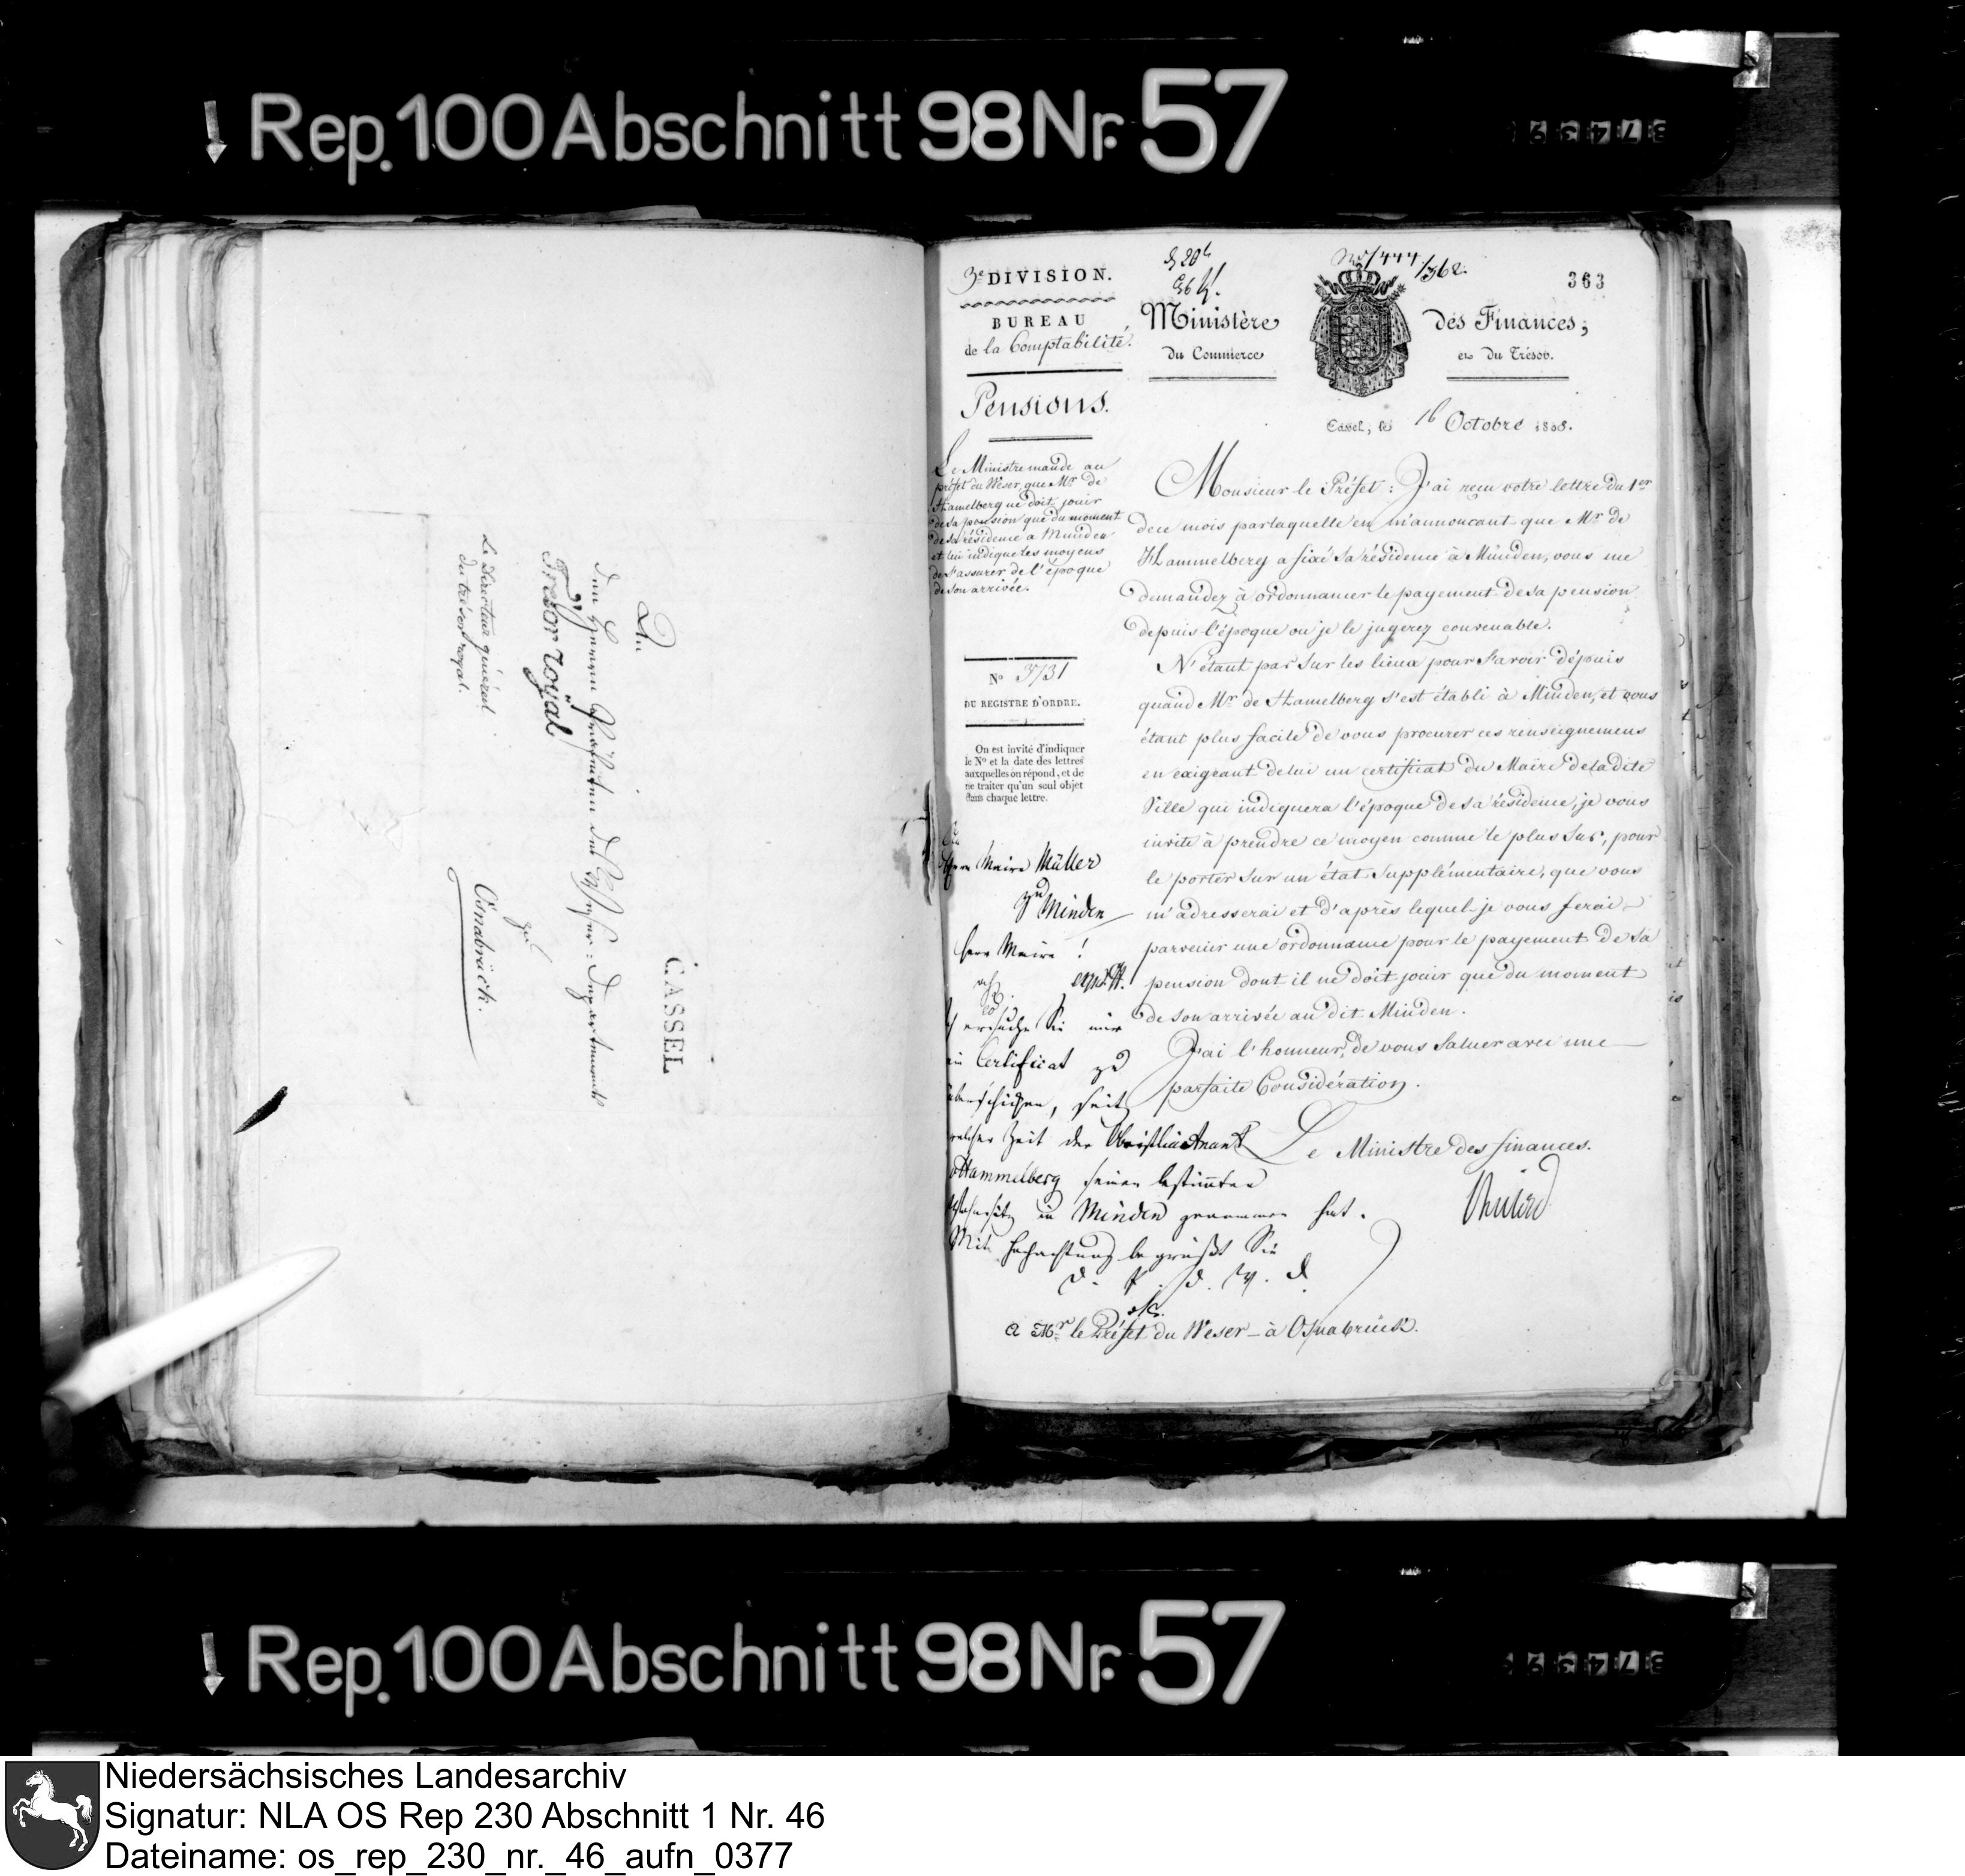 Rep. 100 Abschnitt 98 Nr. 57
An
den Herrn Praefecten des Weser-Departements
Trésor royal
zu
Osnabrück.
Le Directeur général
du trésor royal.
CASSEL
363
3e DIVISION.
BUREAU
de la Comptabilité.
Pensions.
Ministère des Finances,
du Commerce et du Trésor.
Cassel, le 16 Octobre 1808.
Le Ministre mande au
préfet du Weser, que Mr de
Hamelberg ne doit jouir
de sa pension que du moment
de sa résidence a Munden
et lui indique les moyens
de s'assurer de l'époque
de son arrivée.
No 3731
DU REGISTRE D'ORDRE.
On est invité d'indiquer
le No et la date des lettres
auxquelles on répond, et de
ne traiter qu'un seul objet
dans chaque lettre.
Monsieur le Préfet: J'ai reçu votre lettre du 1er
de ce mois par laquelle en m'annoncant que Mr de
Hammelberg a fixé sa résidence à Münden, vous me
demandez à ordonnancer le payement de sa pension
depuis l'époque ou je le jugerez convenable.
N'étant pas sur les lieux pour savoir dépuis
quand Mr de Hamelberg s'est établi à Minden, et vous
étant plus facile de vous procurer ces renseignemens
en exigeant de lui un certificat du Maire de la dite
Ville qui indiquera l'époque de sa résidence, je vous
invite à prendre ce moyen comme le plus sur, pour
le porter sur un état supplémentaire, que vous
m'adresserai et d'après lequel je vous ferai
parvenir une ordonnance pour le payement de sa
pension dont il ne doit jouir que du moment
de son arrivée au dit Minden.
J'ai l'honneur de vous saluer avec une
parfaite Considération.
Le Ministre des finances.
Herrn Maire Müller
zu Minden
Herr Maire!
ersuche Sie mir
ein Certificat zu
überschicken, seit
welcher Zeit der Obristlieutnant
v Hammelberg seinen bestimten
Wohnsitz in Minden genommen hat.
Mit Hochachtung begrüßt Sie
d. P. d. W. d.
a Mr le Préfet du Weser - à Osnabrück.
Rep. 100 Abschnitt 98 Nr. 57
Niedersächsisches Landesarchiv
Signatur: NLA OS Rep 230 Abschnitt 1 Nr. 46
Dateiname: os_rep_230_nr._46_aufn_0377